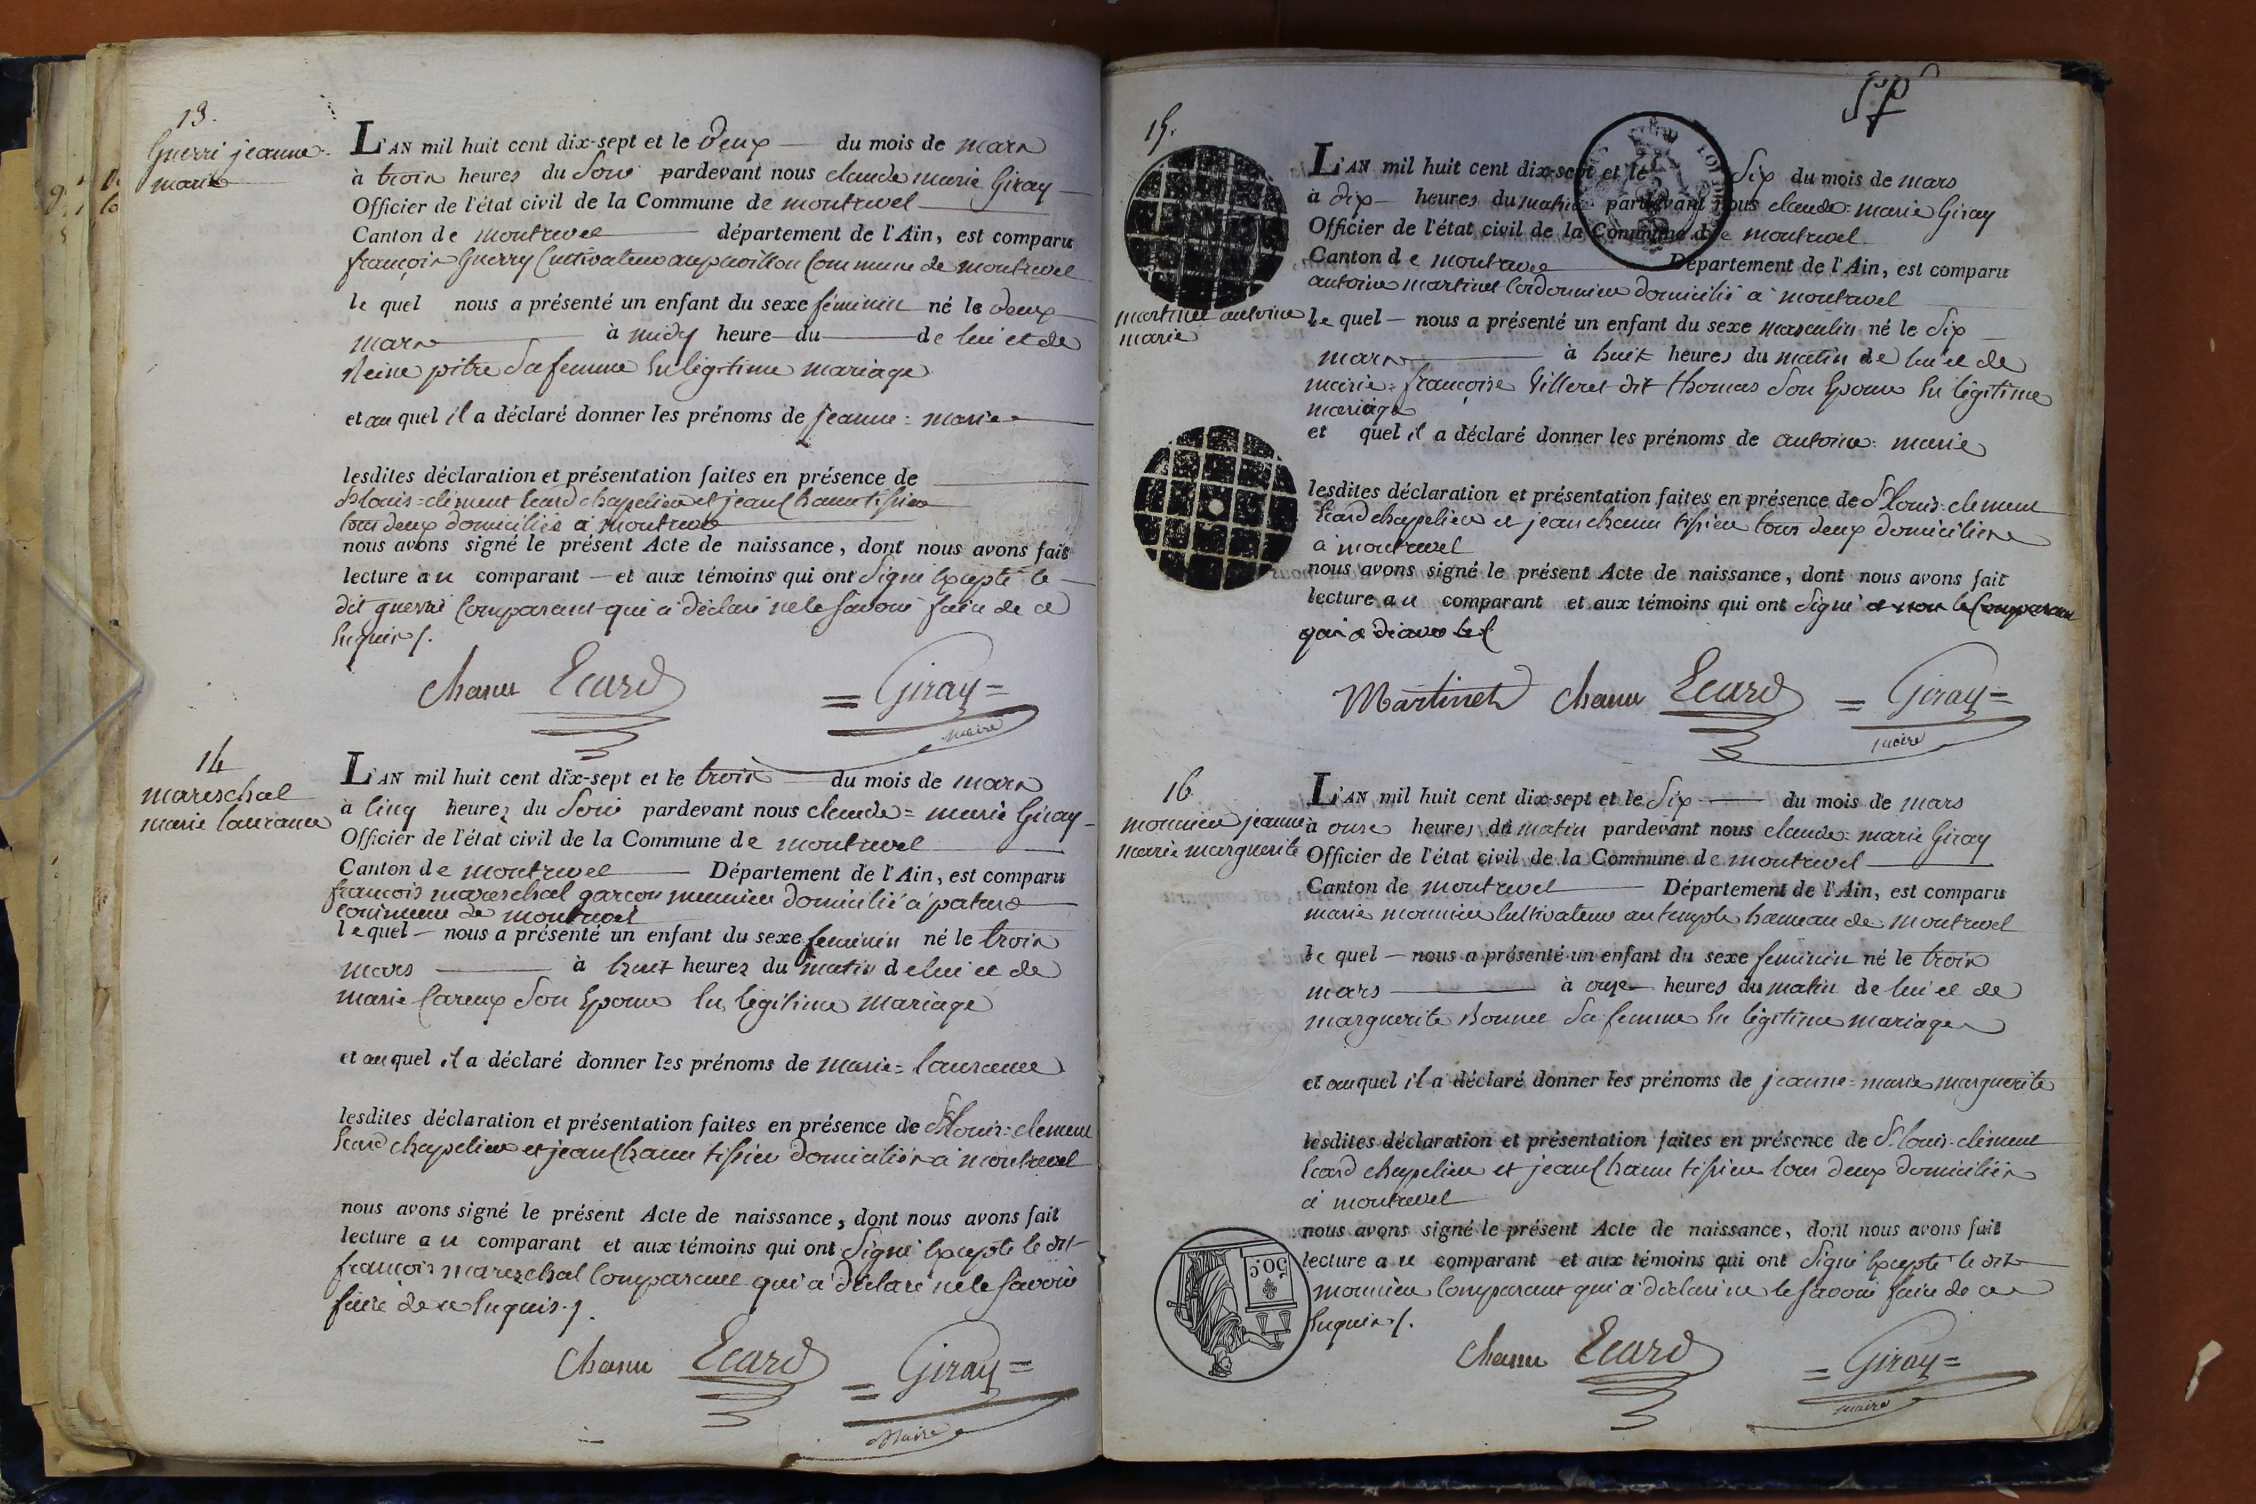 13.
Guerri jeanne
marie
L'AN mil huit cent dix-sept et le deux du mois de mars
à trois heures du soir pardevant nous claude marie Giray
Officier de l'état civil de la Commune de montrevel
Canton de montrevel département de l'Ain, est comparu
françois Guerry Cultivateur au pavillon Commune de montrevel
le quel nous a présenté un enfant du sexe féminin né le deux
mars à midy heure du de lui et de
Reine pitre Sa femme En légitime mariage
et au quel il a déclaré donner les prénoms de jeanne = marie
lesdites déclaration et présentation faites en présence de
St louis = clément Ecard chapelier et jean Chanu tisier
tous deux domiciliés à montrevel
nous avons signé le présent Acte de naissance, dont nous avons fait
lecture au comparant et aux témoins qui ont Signé Excepté le
dit guerri Comparant qui a déclaré ne le savoir faire de ce
Enquis /.
Chanu Ecard = Giray =
maire
14
mareschal
marie laurance
L'AN mil huit cent dix-sept et le trois du mois de mars
à cinq heures du Soir pardevant nous claude = marie Giray
Officier de l'état civil de la Commune de montrevel
Canton de montrevel Département de l'Ain, est comparu
françois mareschal garçon meunier domicilié à
commune de montrevel
le quel nous a présenté un enfant du sexe feminin né le trois
mars à huit heures du matin de lui et de
marie Careux Son Epouse En légitime mariage
et au quel il a déclaré donner les prénoms de marie = laurance
lesdites déclaration et présentation faites en présence de St louis = clement
Ecard chapelier et jean Chanu tisier domiciliés à montrevel
nous avons signé le présent Acte de naissance, dont nous avons fait
lecture au comparant et aux témoins qui ont Signé Excepté le dit
françois mareschal Comparant qui a déclaré ne le savoir
faire de ce Enquis /.
Chanu Ecard = Giray =
Maire
15.
martinet antoine
marie
L'AN mil huit cent dix-sept et le Six du mois de mars
à dix heures du matin pardevant nous claude = marie Giray
Officier de l'état civil de la Commune de montrevel
Canton de montrevel Département de l'Ain, est comparu
antoine martinet Cordonnier domicilié à montrevel
le quel nous a présenté un enfant du sexe masculin né le Six
mars à huit heures du matin de lui et de
marie = françoise Villeret dit thomas Son Epouse En légitime
mariage
et quel il a déclaré donner les prénoms de antoine = marie
lesdites déclaration et présentation faites en présence de St louis = clement
Ecard chapelier et jean chanu tisier tous deux domiciliés
à montrevel
nous avons signé le présent Acte de naissance, dont nous avons fait
lecture au comparant et aux témoins qui ont Signé et non le Comparant
qui a
Martinet Chanu Ecard = Giray =
maire
16.
monnier jeanne
marie marguerite
L'AN mil huit cent dix-sept et le Six du mois de mars
à onse heures du matin pardevant nous claude = marie Giray
Officier de l'état civil de la Commune de montrevel
Canton de montrevel Département de l'Ain, est comparu
marie monnier Cultivateur au temple hameau de montrevel
le quel nous a présenté un enfant du sexe feminin né le trois
mars à onze heures du matin de lui et de
marguerite Bonnet Sa femme En légitime mariage
et au quel il a déclaré donner les prénoms de jeanne = marie marguerite
lesdites déclaration et présentation faites en présence de St louis = clément
Ecard chapelier et jean Chanu tisier tous deux domiciliés
à montrevel
nous avons signé le présent Acte de naissance, dont nous avons fait
lecture au comparant et aux témoins qui ont Signé Excepté le dit
monnier Comparant qui a déclaré ne le savoir faire de ce
Enquis /.
50 c.
Chanu Ecard = Giray =
maire